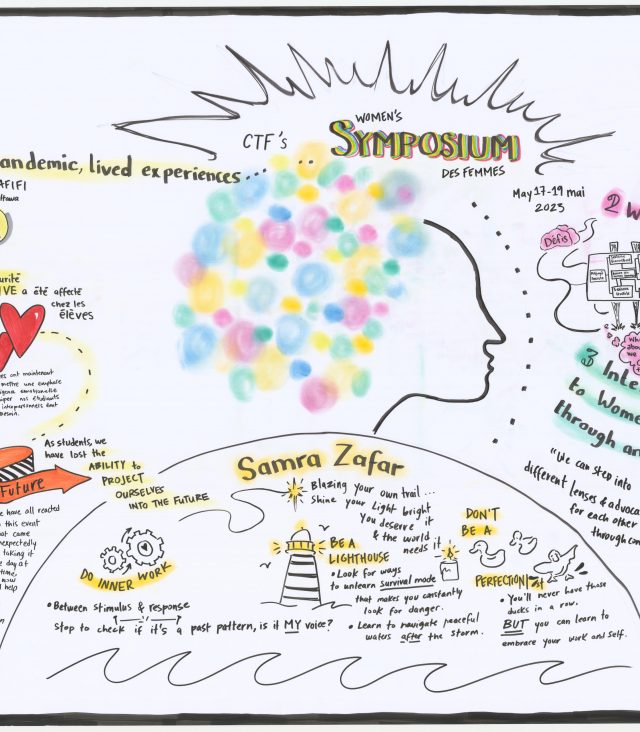 WOMEN'S
CTF's SYMPOSIUM
DES FEMMES
May 17-19 mai
2023
andemic, lived experiences...
AFIFI
IVE a été affecté
chez les
élèves
As students, we
have lost the
ABILITY to
PROJECT
OURSELVES
INTO THE FUTURE
Future
e have all reacted
this event
at came
expectedly
taking it
e day at
time,
now
help
2 W
Défis
3 Inte
to Wome
through an
"We can step into
different lenses & advoca
for each other
through con
Samra Zafar
Blazing your own trail...
Shine your Light bright
You deserve it
& the world
needs it
DO INNER WORK
• Between stimulus & response
Stop to check if it's a past pattern, is it MY voice?
BE A
LIGHTHOUSE
• Look for ways
to unlearn survival mode
that makes you constantly
look for danger.
• Learn to navigate peaceful
waters after the storm.
DON'T
BE A
PERFECTIONIST
• You'll never have those
ducks in a row.
BUT you can learn to
embrace your work and self.